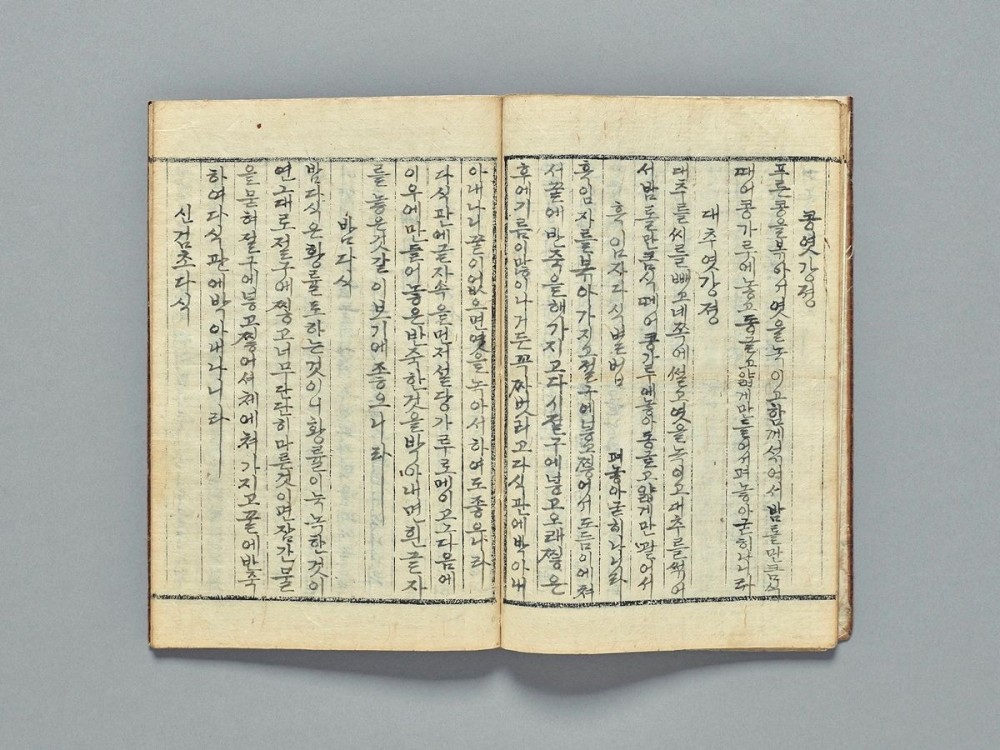 콩엿강졍
푸른콩을복아서엿을녹이고함께석어서밤톨만큼식
떼어콩가루에놋코동굴고얇게만들어서펴놓아굳히나니라
대추엿강졍
대추를씨를빼고네쪽에썰고엿을녹이고대추를썩어
서밤톨만큼식떼어콩가루에놓아동굴고얇게만들어서
펴놓아굳히나니라
흑임자다식별법
흑임자를복아가지고졀구에넣고찧어서드듬이에쳐
서꿀에반죽을해가지고다시졀구에넣고오래찧은
후에기름이많이나거든꼭짜벗리고다식판에박아내
아내나니꿀이없으면엿을녹아서하여도좋으니라
다식판에글자속을먼저설당가루로메이고그다음에
이우에만들어놓은반죽한것을박아내면흰글자
를놓은것갈이보기에좋으니라
밤다식
밤다식은황률노하는것이니황률이눅눅한것이
연그대로졀구에찧고너무단단히마른것이면잠간물
을뭇혀졀구에넣고찧어서체에쳐가지고꿀에반죽
하여다식판에박아내나니라
신검초다식